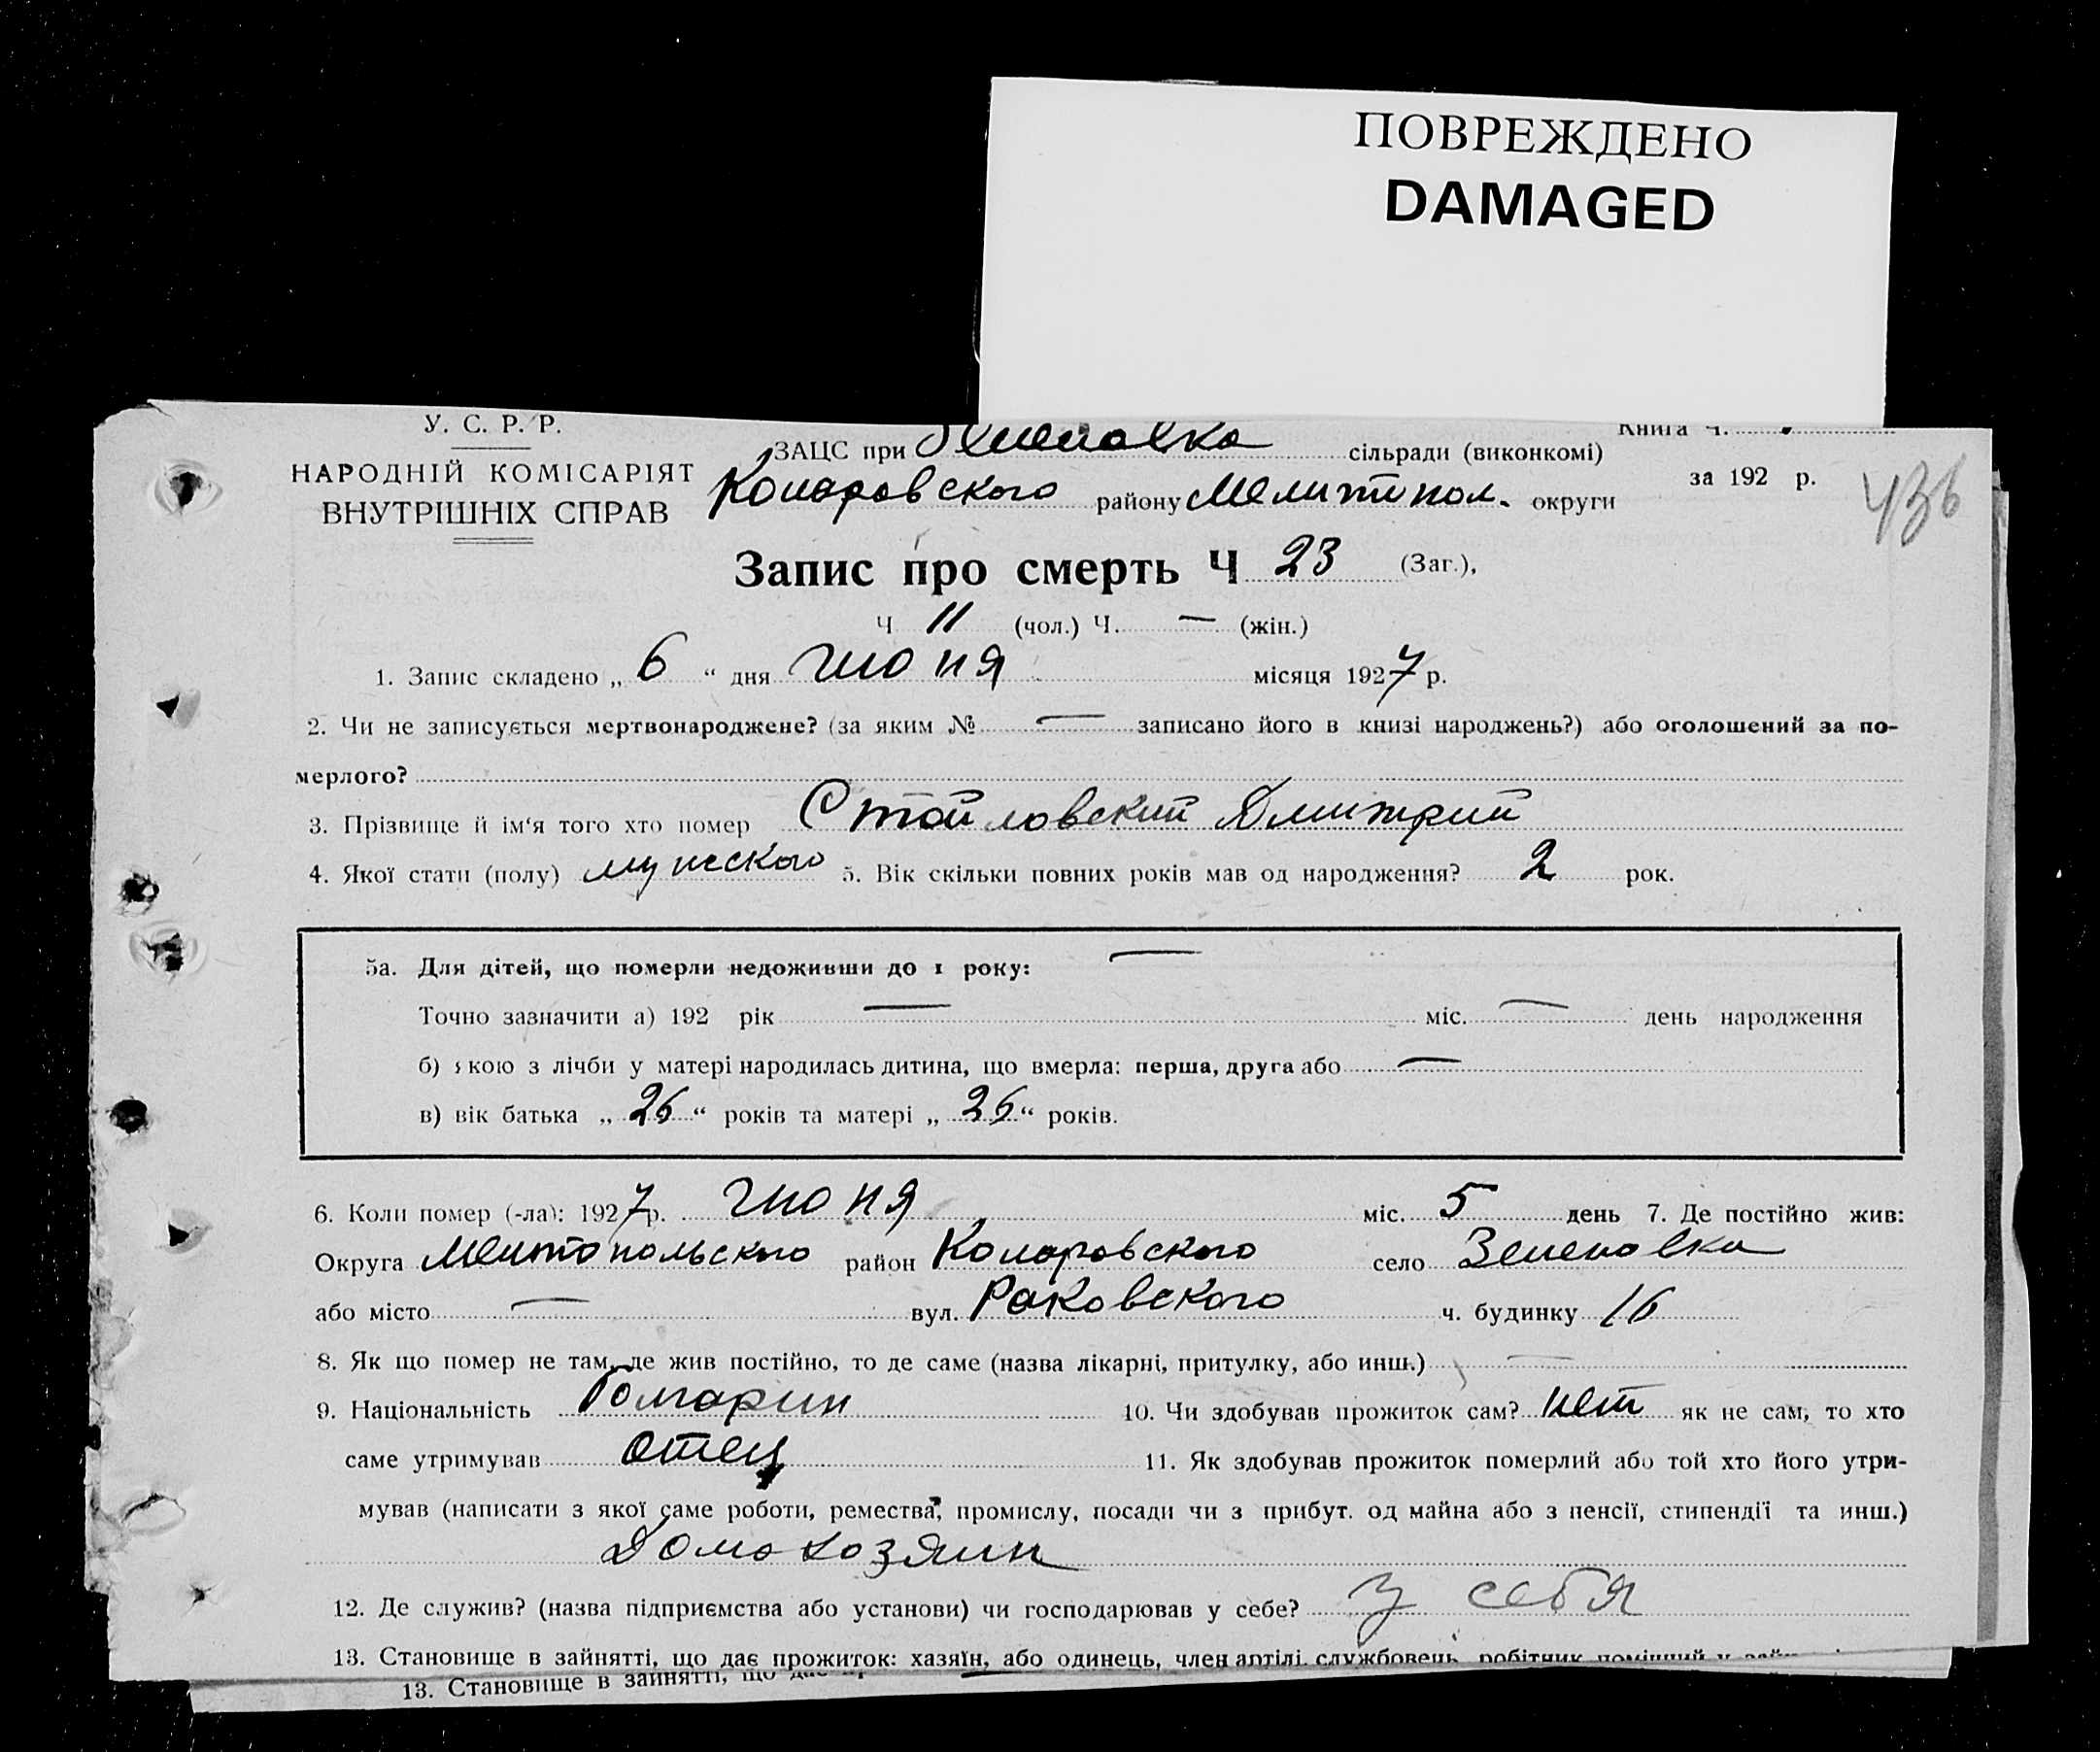 ПОВРЕЖДЕНО
DAMAGED
У. С. Р. Р.
НАРОДНІЙ КОМІСАРІЯТ
ВНУТРІШНІХ СПРАВ
Книга Ч.
за 192 р.
436
ЗАЦС при сільради (виконкомі)
Коларовского району Мелитопол. округи
Запис про смерть Ч 23 (Заг.),
Ч 11 (чол.) Ч. — (жін.)
1. Запис складено „ 6 “ дня июня місяця 1927 р.
2. Чи не записується мертвонароджене? (за яким № — записано його в книзі народжень?) або оголошений за по-
мерлого?
3. Прізвище й ім'я того хто помер Стойловский Дмитрий
4. Якої стати (полу) мужского 5. Вік скільки повних років мав од народження? 2 рок.
5а. Для дітей, що померли недоживши до 1 року: —
Точно зазначити а) 192 рік — міс. — день народження
б) якою з лічби у матері народилась дитина, що вмерла: перша, друга або —
в) вік батька „ 26 “ років та матері „ 26 “ років.
6. Коли помер (-ла): 1927 р. июня міс. 5 день 7. Де постійно жив:
Округа Мелитопольского район Коларовского село Зеленовка
або місто — вул. Раковского ч. будинку 16
8. Як що помер не там, де жив постійно, то де саме (назва лікарні, притулку, або инш.) —
9. Національність Болгарин 10. Чи здобував прожиток сам? нет як не сам, то хто
саме утримував отец 11. Як здобував прожиток померлий або той хто його утри-
мував (написати з якої саме роботи, ремества, промислу, посади чи з прибут. од майна або з пенсії, стипендії та инш.)
Домохозяин
12. Де служив? (назва підприємства або установи) чи господарював у себе? у себя
13. Становище в зайнятті, що дає прожиток: хазяїн, або одинець, член артілі, службовець, робітник
13. Становище в зайнятті, що дає